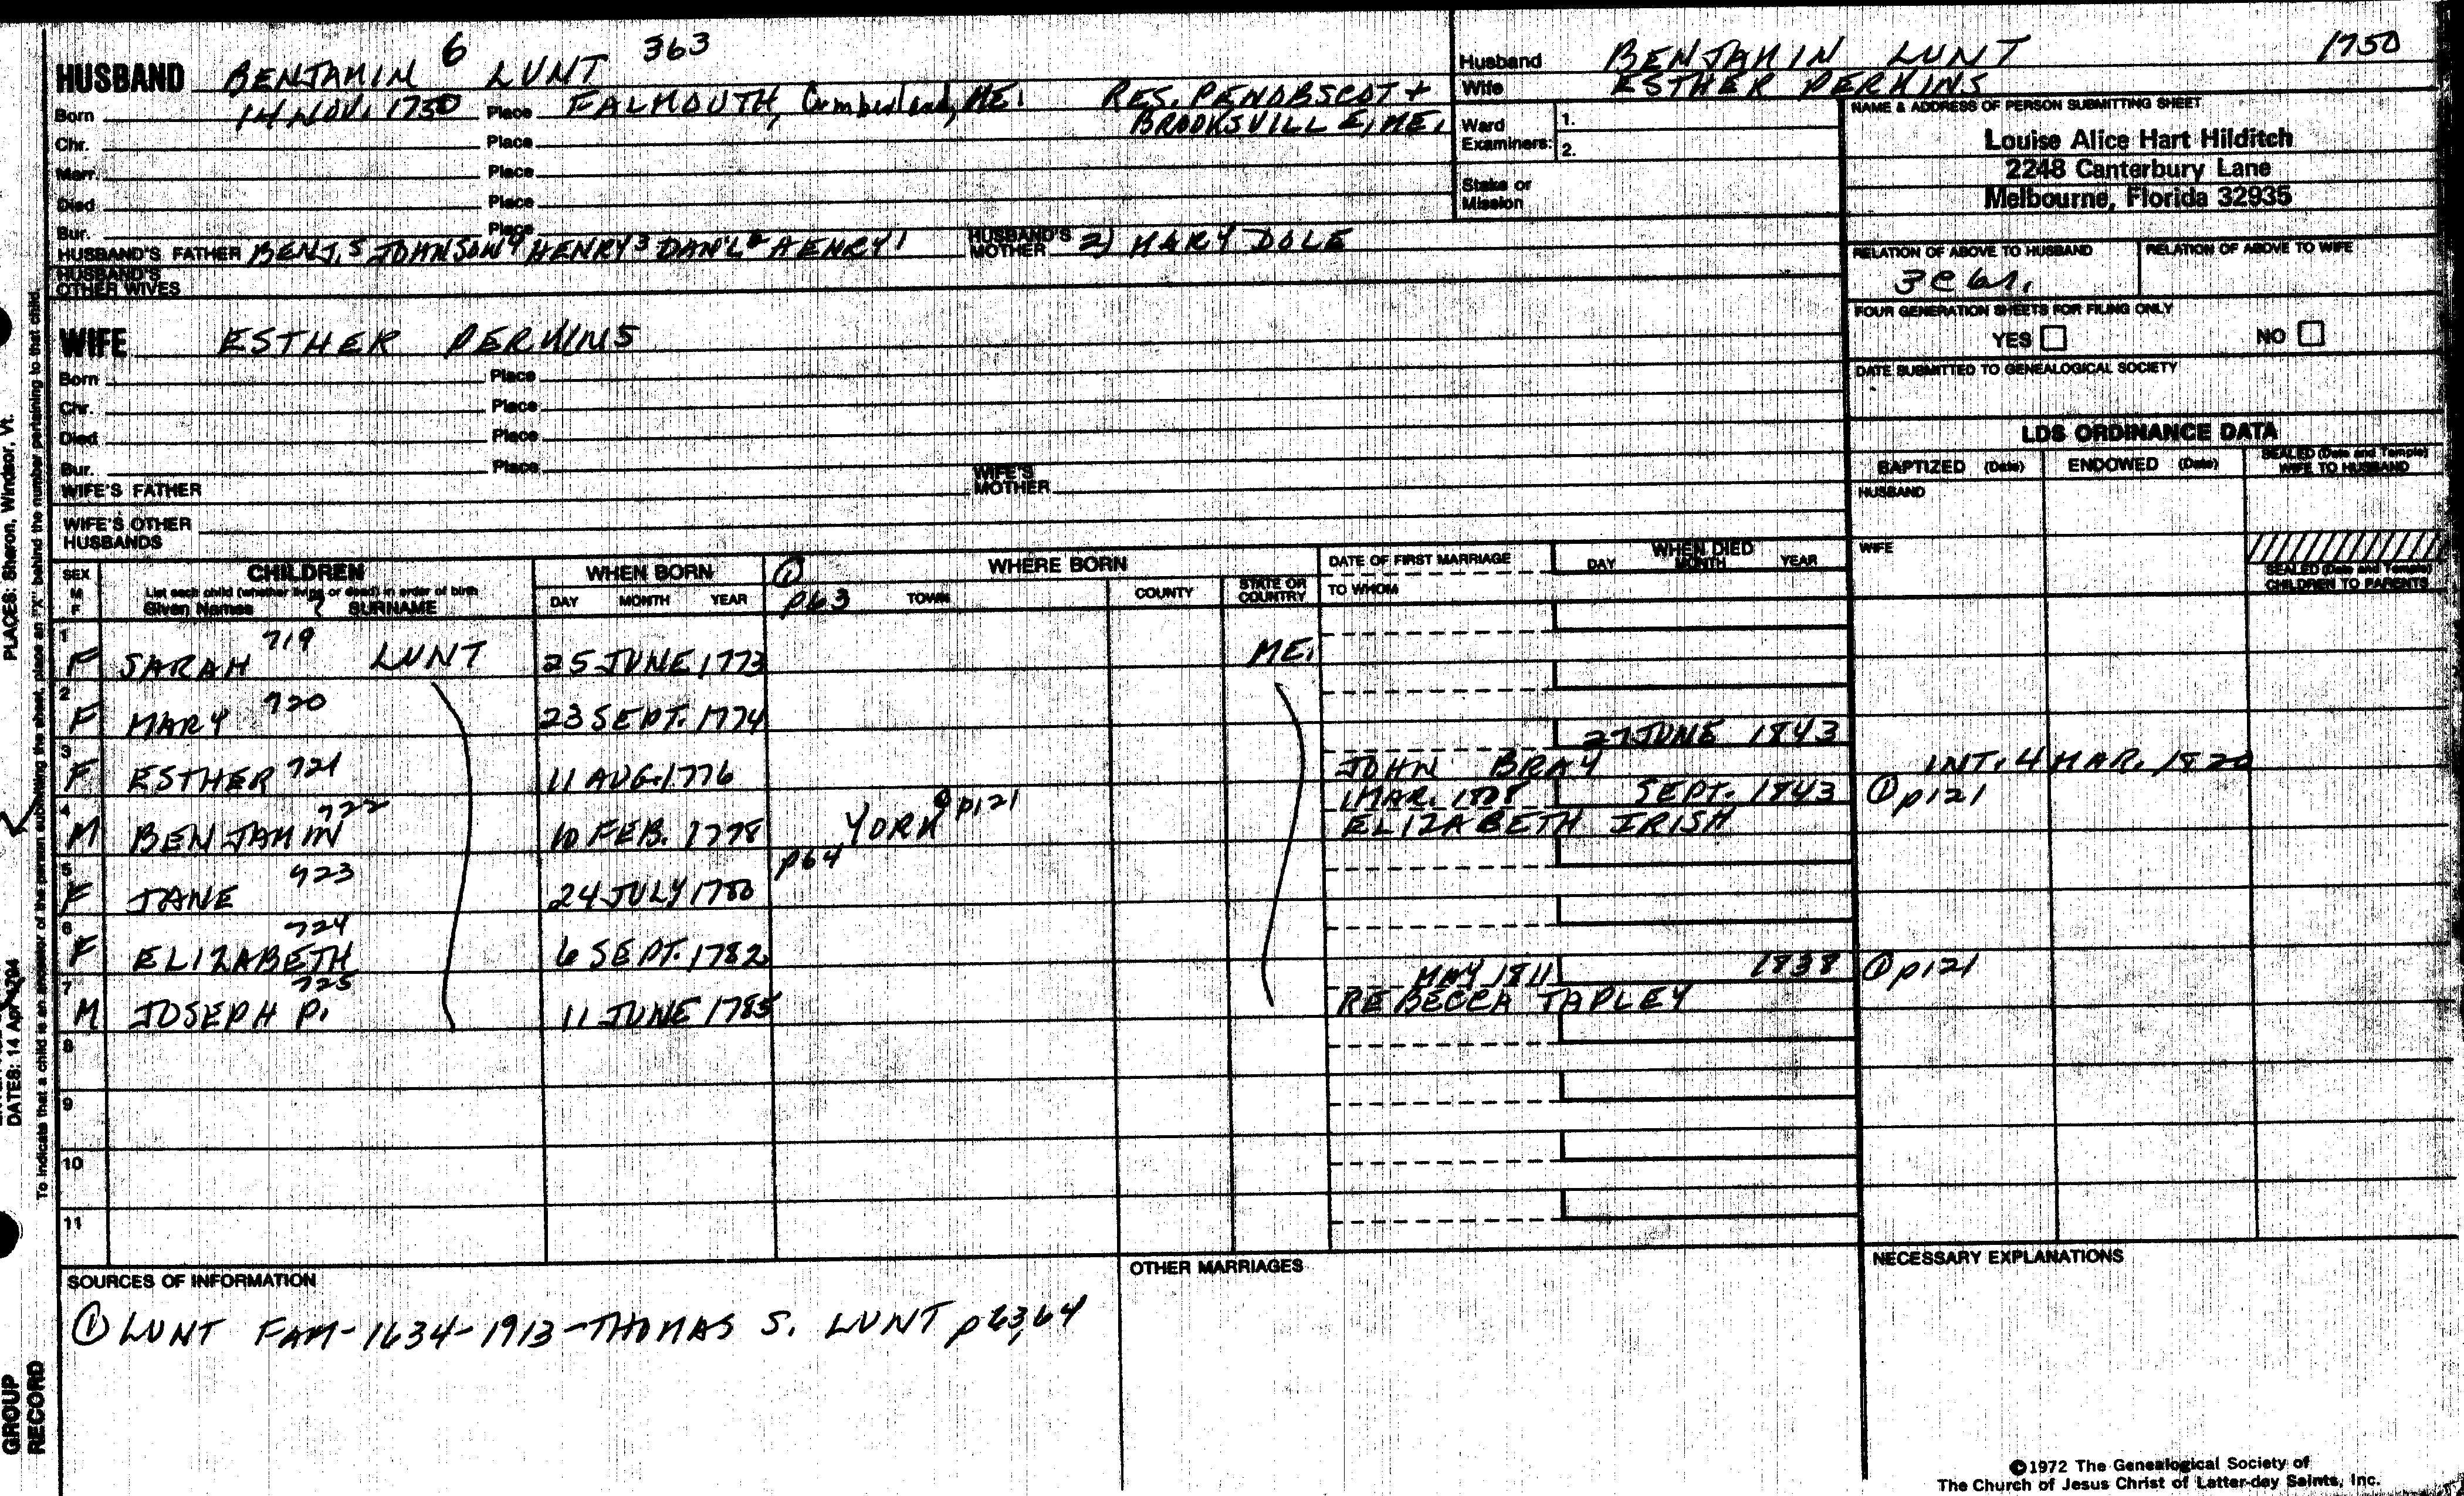 HUSBAND BENJAMIN 6 LUNT 363
Born 14 NOV. 1750 Place FALMOUTH, Cumberland, ME. RES. PENOBSCOT +
BROOKSVILLE, ME.
Chr. Place
Marr. Place
Died Place
Bur. Place
HUSBAND'S FATHER BENJ.5 JOHNSON4 HENRY3 DAN'L2 HENRY1 HUSBAND'S MOTHER 2) MARY DOLE
HUSBAND'S OTHER WIVES
WIFE ESTHER PERKINS
Born Place
Chr. Place
Died Place
Bur. Place
WIFE'S FATHER WIFE'S MOTHER
WIFE'S OTHER HUSBANDS
Husband BENJAMIN LUNT 1750
Wife ESTHER PERKINS
Ward Examiners: 1.
2.
Stake or Mission
NAME & ADDRESS OF PERSON SUBMITTING SHEET
Louise Alice Hart Hilditch
2248 Canterbury Lane
Melbourne, Florida 32935
RELATION OF ABOVE TO HUSBAND RELATION OF ABOVE TO WIFE
3C 6r.
FOUR GENERATION SHEETS FOR FILING ONLY
YES NO
DATE SUBMITTED TO GENEALOGICAL SOCIETY
LDS ORDINANCE DATA
BAPTIZED (Date) ENDOWED (Date) SEALED (Date and Temple) WIFE TO HUSBAND
HUSBAND
WIFE
SEALED (Date and Temple) CHILDREN TO PARENTS
SEX M F
CHILDREN
List each child (whether living or dead) in order of birth
Given Names SURNAME
WHEN BORN
DAY MONTH YEAR
① p63
WHERE BORN
TOWN COUNTY STATE OR COUNTRY
DATE OF FIRST MARRIAGE
TO WHOM
WHEN DIED
DAY MONTH YEAR
1 F SARAH 719 LUNT 25 JUNE 1773 ME.
2 F MARY 720 23 SEPT. 1774
27 JUNE 1843
3 F ESTHER 721 11 AUG. 1776 JOHN BRAY INT. 4 MAR. 1820
1 MAR. 1808 SEPT. 1843 ① p121
4 M BENJAMIN 722 10 FEB. 1778 YORK ① p121 ELIZABETH IRISH
p64
5 F JANE 723 24 JULY 1780
6 F ELIZABETH 724 6 SEPT. 1782
MAY 1811 1838 ① p121
7 M JOSEPH P. 725 11 JUNE 1785 REBECCA TAPLEY
8
9
10
11
SOURCES OF INFORMATION
① LUNT FAM-1634-1913-THOMAS S. LUNT p63,64
OTHER MARRIAGES
NECESSARY EXPLANATIONS
©1972 The Genealogical Society of
The Church of Jesus Christ of Latter-day Saints, Inc.
PLACES: Sharon, Windsor, Vt.
DATES: 14 Apr 1794
To indicate that a child is an ancestor of the person submitting the sheet, place an "X" behind the number pertaining to that child.
GROUP
RECORD